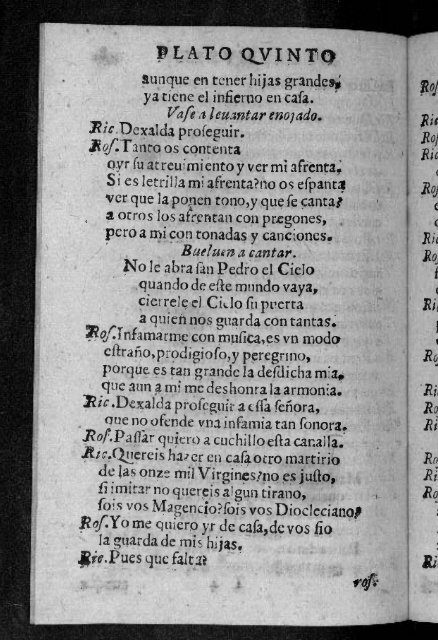 PLATO QVINTO
aunque en tener hijas grandes,
ya tiene el infierno en casa.
Vase a leuantar enojado.
Ric. Dexalda proseguir.
Ros. Tanto os contenta
oyr su atreuimiento y ver mi afrenta.
Si es letrilla mi afrenta? no os espanta
ver que la ponen tono, y que se canta?
a otros los afrentan con pregones,
pero a mi con tonadas y canciones.
Bueluen a cantar.
No le abra san Pedro el Cielo
quando de este mundo vaya,
cierrele el Cielo su puerta
a quien nos guarda con tantas.
Ros. Infamarme con musica, es vn modo
estraño, prodigioso, y peregrino,
porque es tan grande la desdicha mia,
que aun a mi me deshonra la armonia.
Ric. Dexalda proseguir a essa señora,
que no ofende vna infamia tan sonora.
Ros. Passar quiero a cuchillo esta canalla.
Ric. Quereis hazer en casa otro martirio
de las onze mil Virgines? no es justo,
si imitar no quereis algun tirano,
sois vos Magencio? sois vos Diocleciano?
Ros. Yo me quiero yr de casa, de vos fio
la guarda de mis hijas.
Ric. Pues que falta?
ros.
Ros
Ric
Ros
Ric
Ros
Ric
Ros
Ric
Ros
Ric
Ros
Ric
Ros
Ric
Ros
Ric